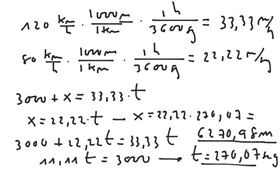 120 km/h · 1000m/1km · 1h/3600s = 33,33 m/s
80 km/h · 1000m/1km · 1h/3600s = 22,22 m/s
3000 + x = 33,33 · t
x = 22,22 · t → x = 22,22 · 270,07 =
3000 + 22,22 t = 33,33 t 6270,98m
11,11 t = 3000 → t = 270,07